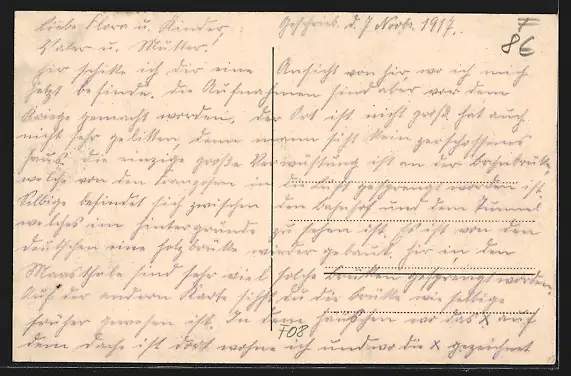 Liebe Flora u. Kinder, Geschrieb. d. 7 Novbr. 1917.
Vater u. Mutter.
F
86
Hir schikke ich dir eine Ansicht von hir, wo ich mich
jetzt befinde. Die Aufnahmen sind aber vor dem
Kriege gemacht worden. Der Ort ist nicht groß hat auch
nicht sehr gelitten, denn mann siht kein zerschossenes
Haus die einzige große Verwüstung ist an der
welche von den Franzosen in die Luft gesprengt worden ist.
Selbige befindet sich zwischen den Bahnhof und dem Tunnel
welches im Hintergrunde zu sehen ist. Es ist von den
deutschen eine Holzbrükke wieder gebaut, hir in den
Maasthale sind sehr viel solche Brükken gesprengt worden.
Auf der andern Karte sihst du die Brükke wie selbige
früher gewesen ist. In dem Häuschen wo das X auf
dem Dache ist dort wohne ich und wo die X gezeichnet
F08